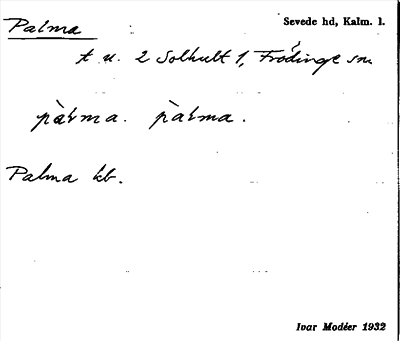 Palma
Sevede hd, Kalm. l.
t u. 2 Solhult 1, Frödinge sn
Palma kb.
Ivar Modéer 1932